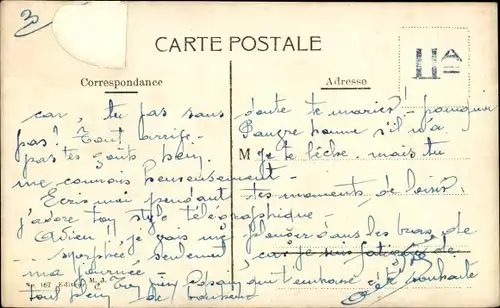 30
CARTE POSTALE
IIA
Correspondance
Adresse
car, tu vas sans doute te marier! pourquoi
pas! Tout arrive. Pauvre homme s'il n'a
pas tes goûts
M
je te lèche. mais tu
me connais heureusement -
Ecris-moi pendant tes moments de loisir,
j'adore ton style télégraphique -
Adieu!! je vais me plonger dans les bras de
morphée, seulement car je suis de
ma journée -
qui t'embrasse et te souhaite
tout plein de bonheur
167 Edition M. J.